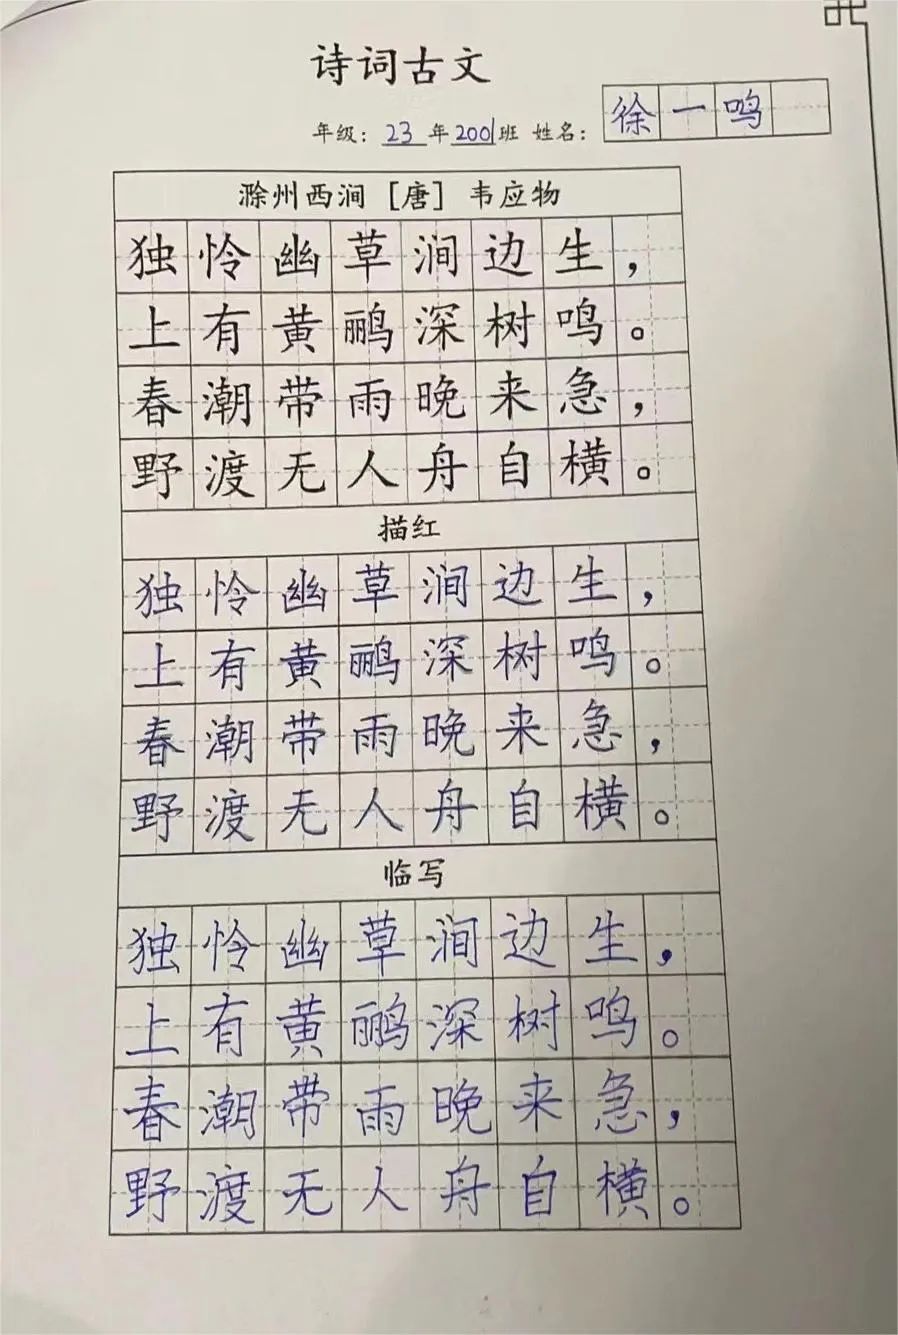 诗词古文
年级：23年2001班 姓名：徐一鸣
滁州西涧［唐］韦应物
独怜幽草涧边生，
上有黄鹂深树鸣。
春潮带雨晚来急，
野渡无人舟自横。
描红
独怜幽草涧边生，
上有黄鹂深树鸣。
春潮带雨晚来急，
野渡无人舟自横。
临写
独怜幽草涧边生，
上有黄鹂深树鸣。
春潮带雨晚来急，
野渡无人舟自横。